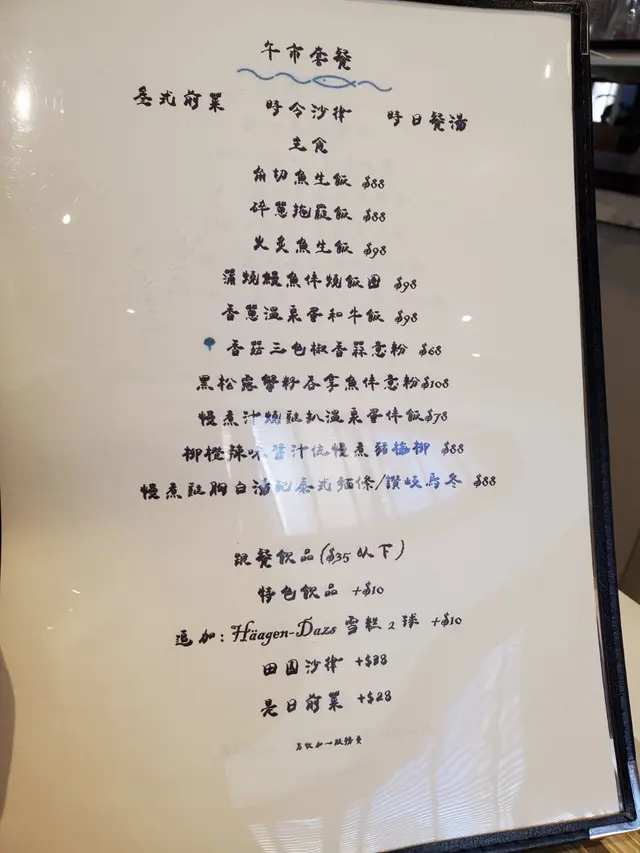 午市套餐
各式前菜 時令沙律 時日餐湯
主食
角切魚生飯 $88
碎蔥拖羅飯 $88
火炙魚生飯 $98
蒲燒鰻魚伴燒飯團 $98
香蔥溫泉蛋和牛飯 $98
香菇三色椒香蒜意粉 $68
黑松露蟹籽吞拿魚伴意粉$108
慢煮汁燒雞扒溫泉蛋伴飯$78
柳橙辣味醬汁伴慢煮豬梅柳 $88
慢煮雞胸白湯配泰式麵條/讚岐烏冬 $88
跟餐飲品($35以下)
特色飲品 +$10
追加:Häagen-Dazs 雪糕 2 球 +$10
田園沙律 +$38
是日前菜 +$28
另收加一服務費